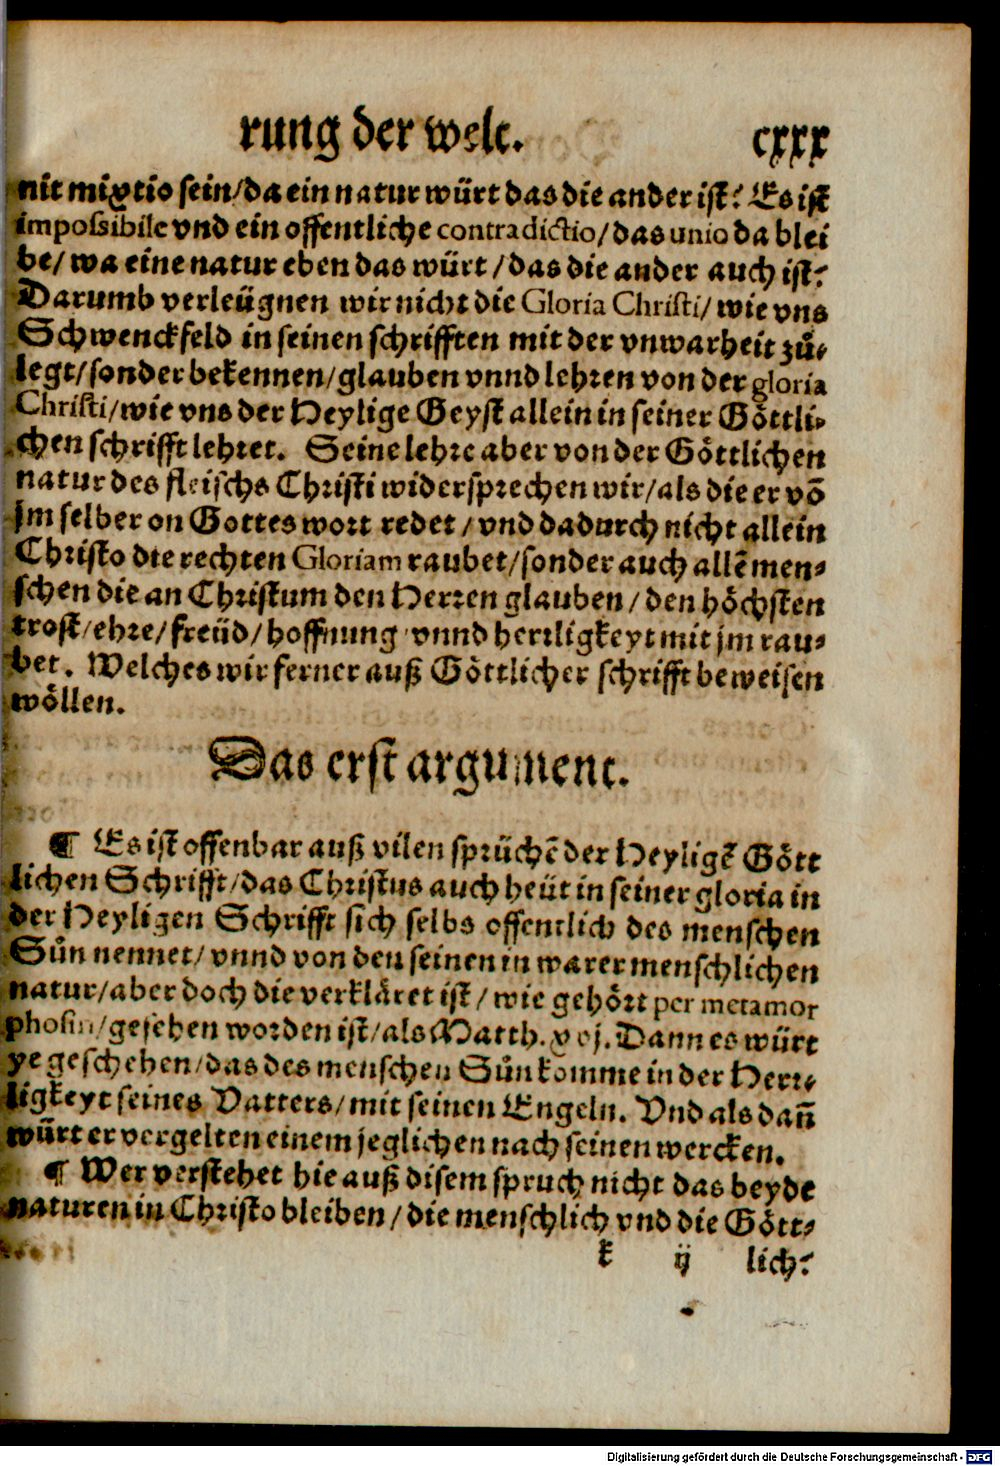 rung der welt. cxxx
nit mixtio sein/da ein natur würt das die ander ist? Es ist
impossibile vnd ein offentliche contradictio/das unio da blei
be/wa eine natur eben das würt/das die ander auch ist?
Darumb verleügnen wir nicht die Gloria Christi/wie vns
Schwenckfeld in seinen schrifften mit der vnwarheit zů-
legt/sonder bekennen/glauben vnnd lehren von der gloria
Christi/wie vns der Heylige Geyst allein in seiner Göttli-
chen schrifft lehret. Seine lehre aber von der Göttlichen
natur des fleischs Christi widersprechen wir/als die er võ
jm selber on Gottes wort redet/vnd dadurch nicht allein
Christo die rechten Gloriam raubet/sonder auch allẽ men-
schen die an Christum den Herren glauben/den höchsten
trost/ehre/freüd/hoffnung vnnd herrligkeyt mit jm rau-
bet. Welches wir ferner auß Göttlicher schrifft beweisen
wöllen.
Das erst argument.
¶ Es ist offenbar auß vilen sprüchẽ der Heyligẽ Gött
lichen Schrifft/das Christus auch heüt in seiner gloria in
der Heyligen Schrifft sich selbs offentlich des menschen
Sůn nennet/vnnd von den seinen in warer menschlichen
natur/aber doch die verkläret ist/wie gehört per metamor
phosin/gesehen worden ist/als Matth. xvj. Dann es würt
ye geschehen/das des menschen Sůn komme in der Herr-
ligkeyt seines Vatters/mit seinen Engeln. Vnd als dañ
würt er vergelten einem jeglichen nach seinen wercken.
¶ Wer verstehet hie auß disem spruch nicht das beyde
naturen in Christo bleiben/die menschlich vnd die Gött-
k ij lich?
Digitalisierung gefördert durch die Deutsche Forschungsgemeinschaft - DFG